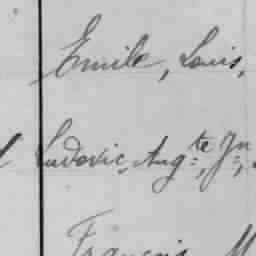 Emile, Louis,
Ludovic, Aug.te, Jn,
François